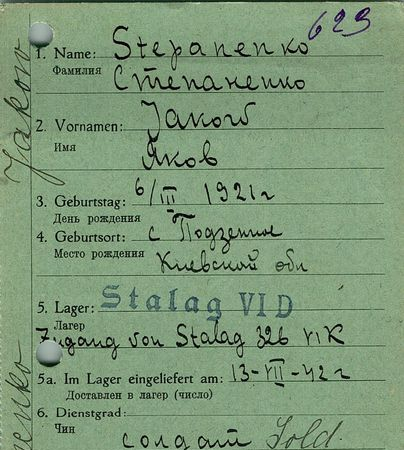 629
1. Name: Stepanenko
Фамилия Степаненко
2. Vornamen: Jakow
Имя Яков
3. Geburtstag: 6/III 1921 г
День рождения
4. Geburtsort: с
Место рождения Киевской обл
5. Lager: Stalag VI D
Лагер
Zugang von Stalag 326 VI K
5a. Im Lager eingeliefert am: 13-VII-42 г
Доставлен в лагер (число)
6. Dienstgrad:
Чин солдат Sold.
Jakow
enko